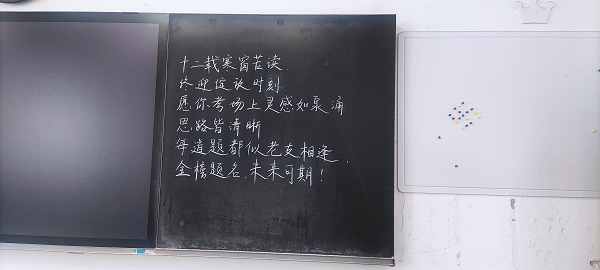 十二载寒窗苦读
终迎绽放时刻
愿你考场上灵感如泉涌
思路皆清晰
每道题都似老友相逢.
金榜题名.未来可期!